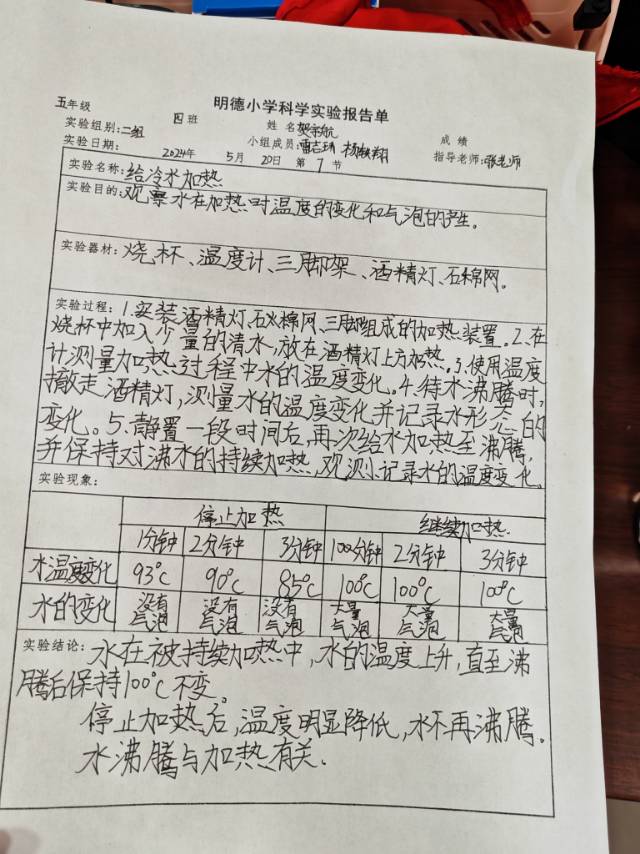 明德小学科学实验报告单
五年级 四班 姓名 贺宗航 成绩
实验组别:二组 小组成员:雷洁琪 杨酞翔 指导老师:张老师
实验日期: 2024年 5月 20日 第 7 节
实验名称:给冷水加热
实验目的:观察水在加热时温度的变化和气泡的产生。
实验器材:烧杯、温度计、三脚架、酒精灯、石棉网。
实验过程:1.安装酒精灯、石棉网、三脚组成的加热装置。2.在
烧杯中加入少量的清水,放在酒精灯上方加热。3.使用温度
计测量加热过程中水的温度变化。4.待水沸腾时,
撤走酒精灯,测量水的温度变化并记录水形态的
变化。5.静置一段时间后,再次给水加热至沸腾,
并保持对沸水的持续加热,观测记录水的温度变化。
实验现象:
停止加热 继续加热
1分钟 2分钟 3分钟 100分钟 2分钟 3分钟
水温度变化 93℃ 90℃ 85℃ 100℃ 100℃ 100℃
水的变化 没有气泡 没有气泡 没有气泡 大量气泡 大量气泡 大量气泡
实验结论:水在被持续加热中,水的温度上升,直至沸
腾后保持100℃不变。
停止加热后,温度明显降低,水不再沸腾。
水沸腾与加热有关.